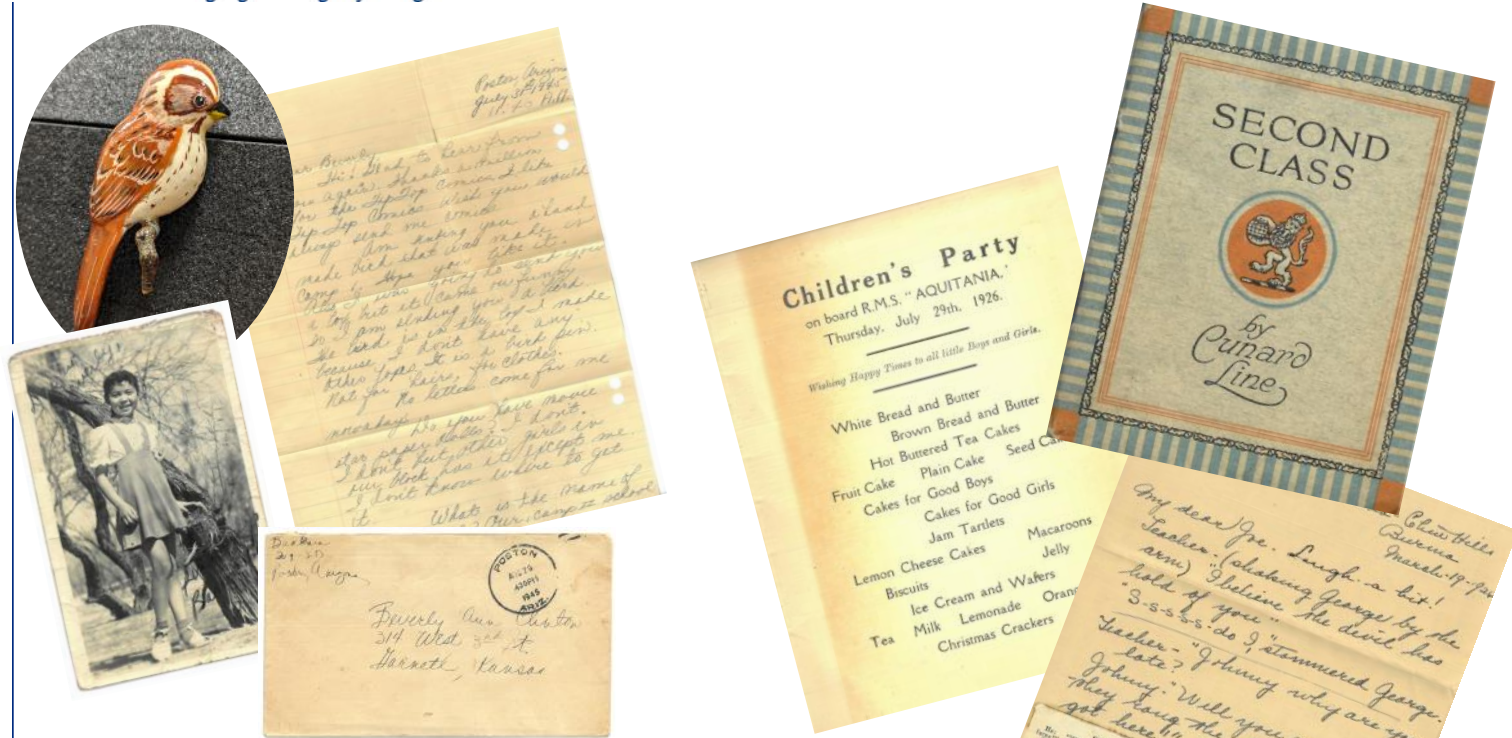 Poston, Arizona
July 31st 1945
Dear Beverly,
Hi! Glad to hear from
you again. Thanks a million
for the Tip Top Comics. I like
Tip Top Comics. Wish you would
always send me comics.
Am sending you a hand
made bird that was made in
camp. Hope you like it.
I was going to send you
a top but it came out funny
so I am sending you a bird
the bird is in the top I made
because I don't have any
other It is a bird pin.
Not for hairs, for clothes.
No letters come for me
nowadays. Do you have movie
star paper dolls? I don't.
I don't but other girls in
our block has it except me.
I don't know where to get
it. What is the name of
Our camp school
Barbara
Poston, Arizona
POSTON
1945
ARIZ.
Beverly Ann Clinton
314 West 3rd St.
Garnett, Kansas
Children's Party
on board R.M.S. "AQUITANIA,"
Thursday, July 29th, 1926.
Wishing Happy Times to all little Boys and Girls.
White Bread and Butter
Brown Bread and Butter
Hot Buttered Tea Cakes
Fruit Cake Plain Cake Seed
Cakes for Good Boys
Cakes for Good Girls
Jam Tartlets
Lemon Cheese Cakes Macaroons
Biscuits Jelly
Ice Cream and Wafers
Tea Milk Lemonade
Christmas Crackers
SECOND
CLASS
by
Cunard
Line
Chin Hills
Burma
March-19-
My dear Joe. Laugh a bit!
Teacher-(shaking George by the
arm) "I believe the devil has
hold of you"
"S-s-s-s-do I," stammered George.
Teacher- "Johnny why are
late?
Johnny. "Will you
they rang the
got here!"